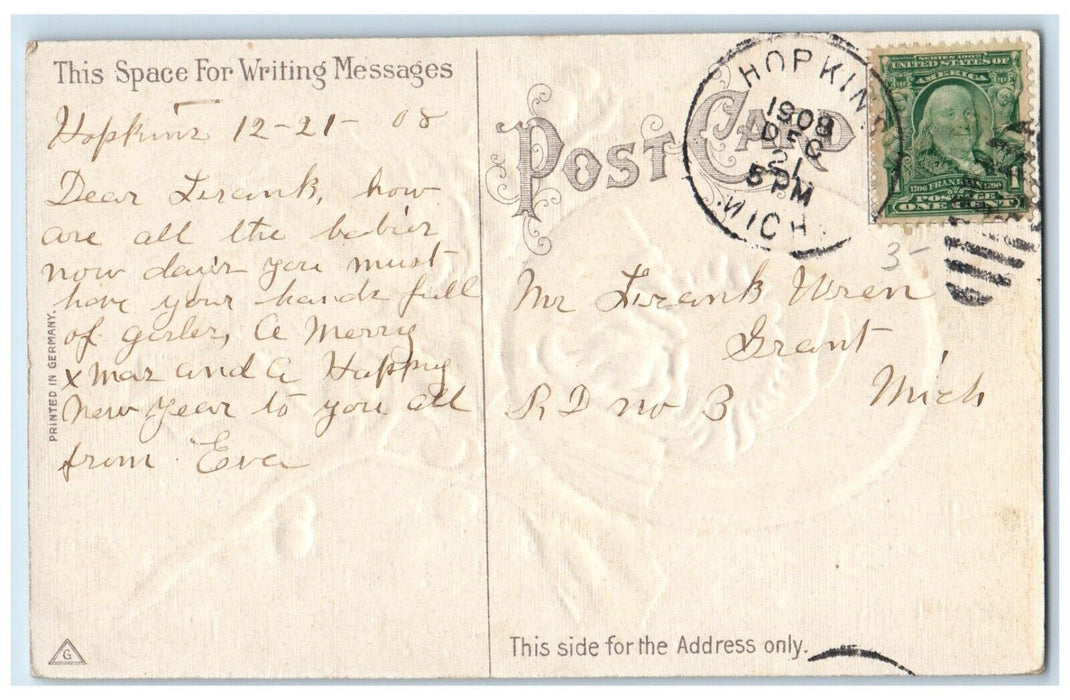 This Space For Writing Messages
Hopkins 12-21- 08
Dear Frank, how
are all the babies
now days you must
have your hands full
of girls, A Merry
x mas and a Happy
New Year to you all
from Eva
PRINTED IN GERMANY.
G
POST CARD
HOPKINS
1908
DEC
21
5 PM
MICH.
SERIES 1902
UNITED STATES OF
AMERICA
1706 FRANKLIN 1790
POSTAGE
1 ONE CENT 1
3-
Mr Frank Wren
Grant
R D no 3 Mich
This side for the Address only.